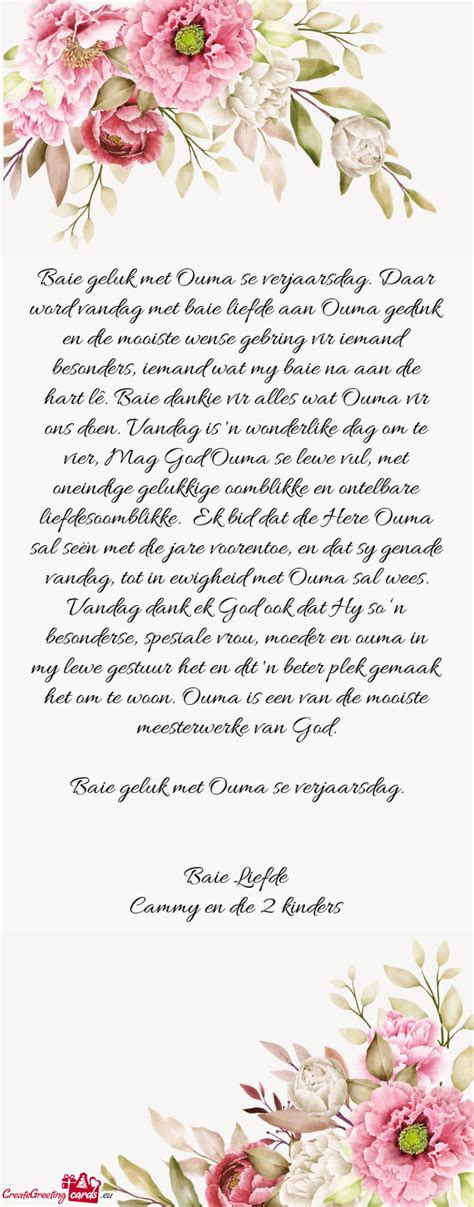 Baie geluk met Ouma se verjaarsdag. Daar
word vandag met baie liefde aan Ouma gedink
en die mooiste wense gebring vir iemand
besonders, iemand wat my baie na aan die
hart lê. Baie dankie vir alles wat Ouma vir
ons doen. Vandag is 'n wonderlike dag om te
vier, Mag God Ouma se lewe vul, met
oneindige gelukkige oomblikke en ontelbare
liefdesoomblikke. Ek bid dat die Here Ouma
sal seën met die jare voorentoe, en dat sy genade
vandag, tot in ewigheid met Ouma sal wees.
Vandag dank ek God ook dat Hy so ‘n
besonderse, spesiale vrou, moeder en ouma in
my lewe gestuur het en dit 'n beter plek gemaak
het om te woon. Ouma is een van die mooiste
meesterwerke van God.
Baie geluk met Ouma se verjaarsdag.
Baie Liefde
Cammy en die 2 kinders
CreateGreetingcards.eu